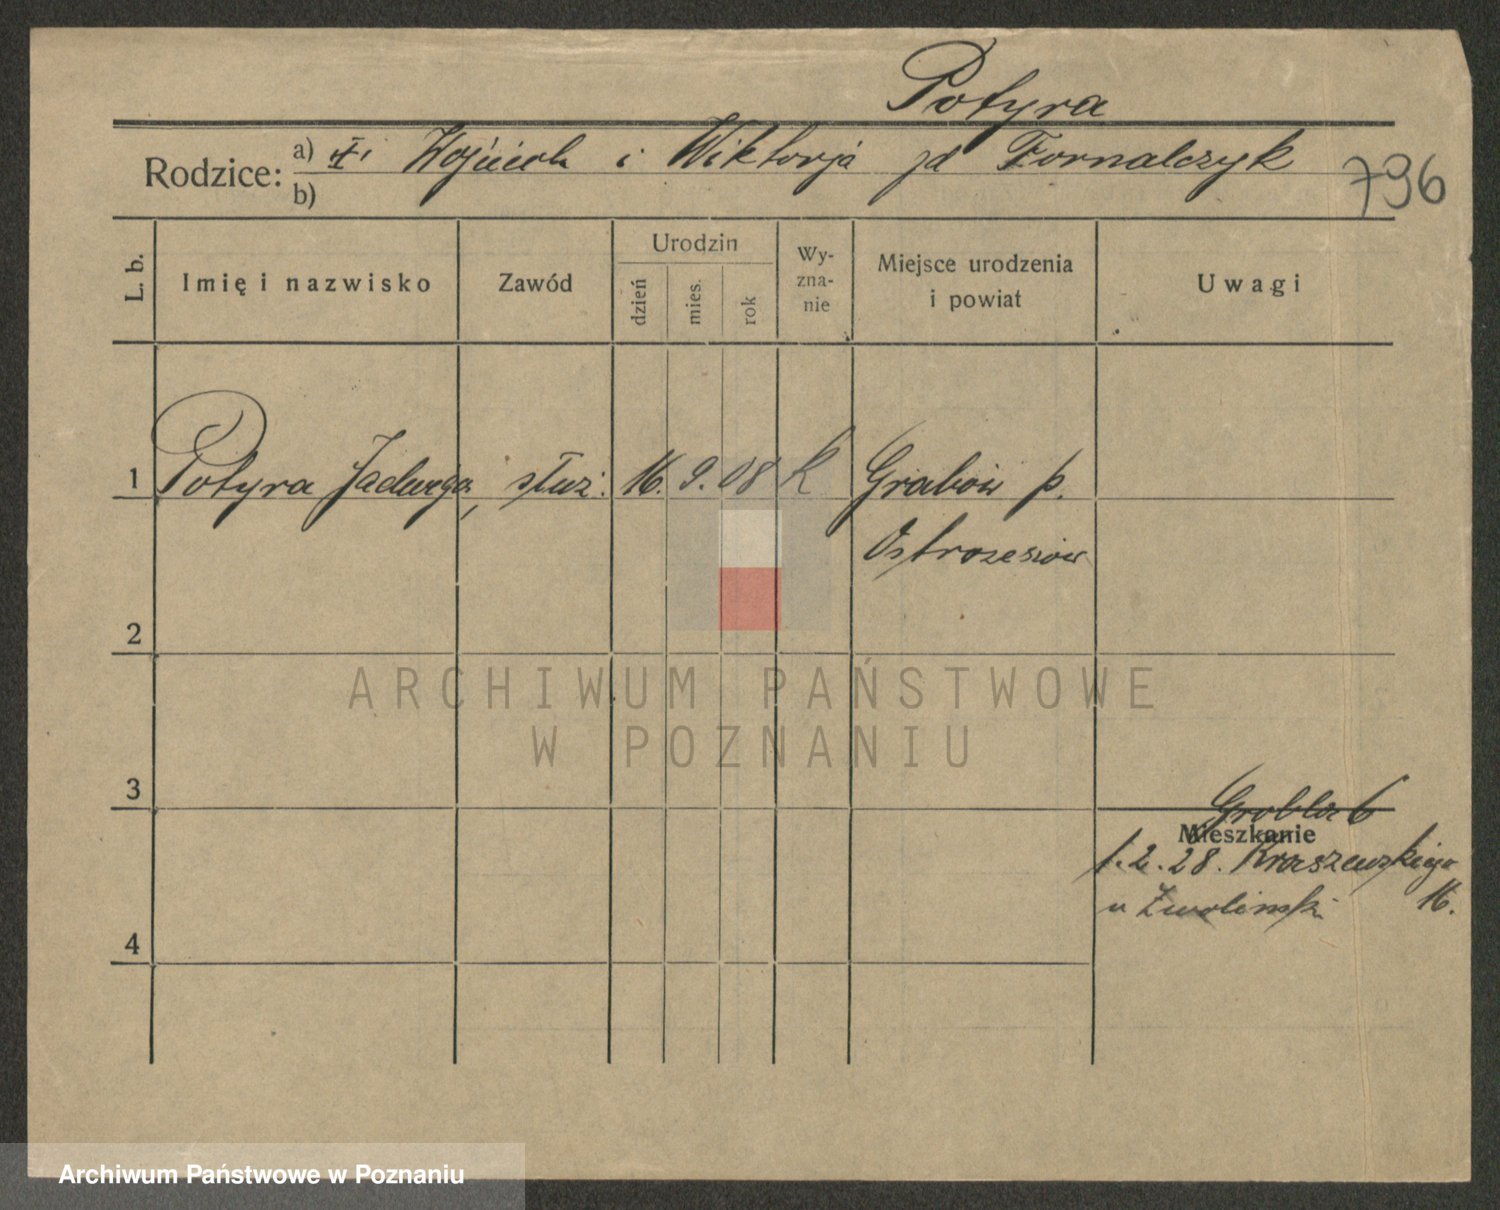 Potyra
Rodzice: a) I. Wojciech i Wiktorja zd Fornalczyk
b)
796
L. b.
Imię i nazwisko
Zawód
Urodzin
dzień
mies.
rok
Wy-
zna-
nie
Miejsce urodzenia
i powiat
Uwagi
1 Potyra Jadwiga, służ. 16. 9. 08 K Grabów p.
Ostrzeszów
2
ARCHIWUM PAŃSTWOWE
W POZNANIU
3
Grobla 6
Mieszkanie
1.2.28. Kraszewskiego
16.
u Zwoliński
4
Archiwum Państwowe w Poznaniu